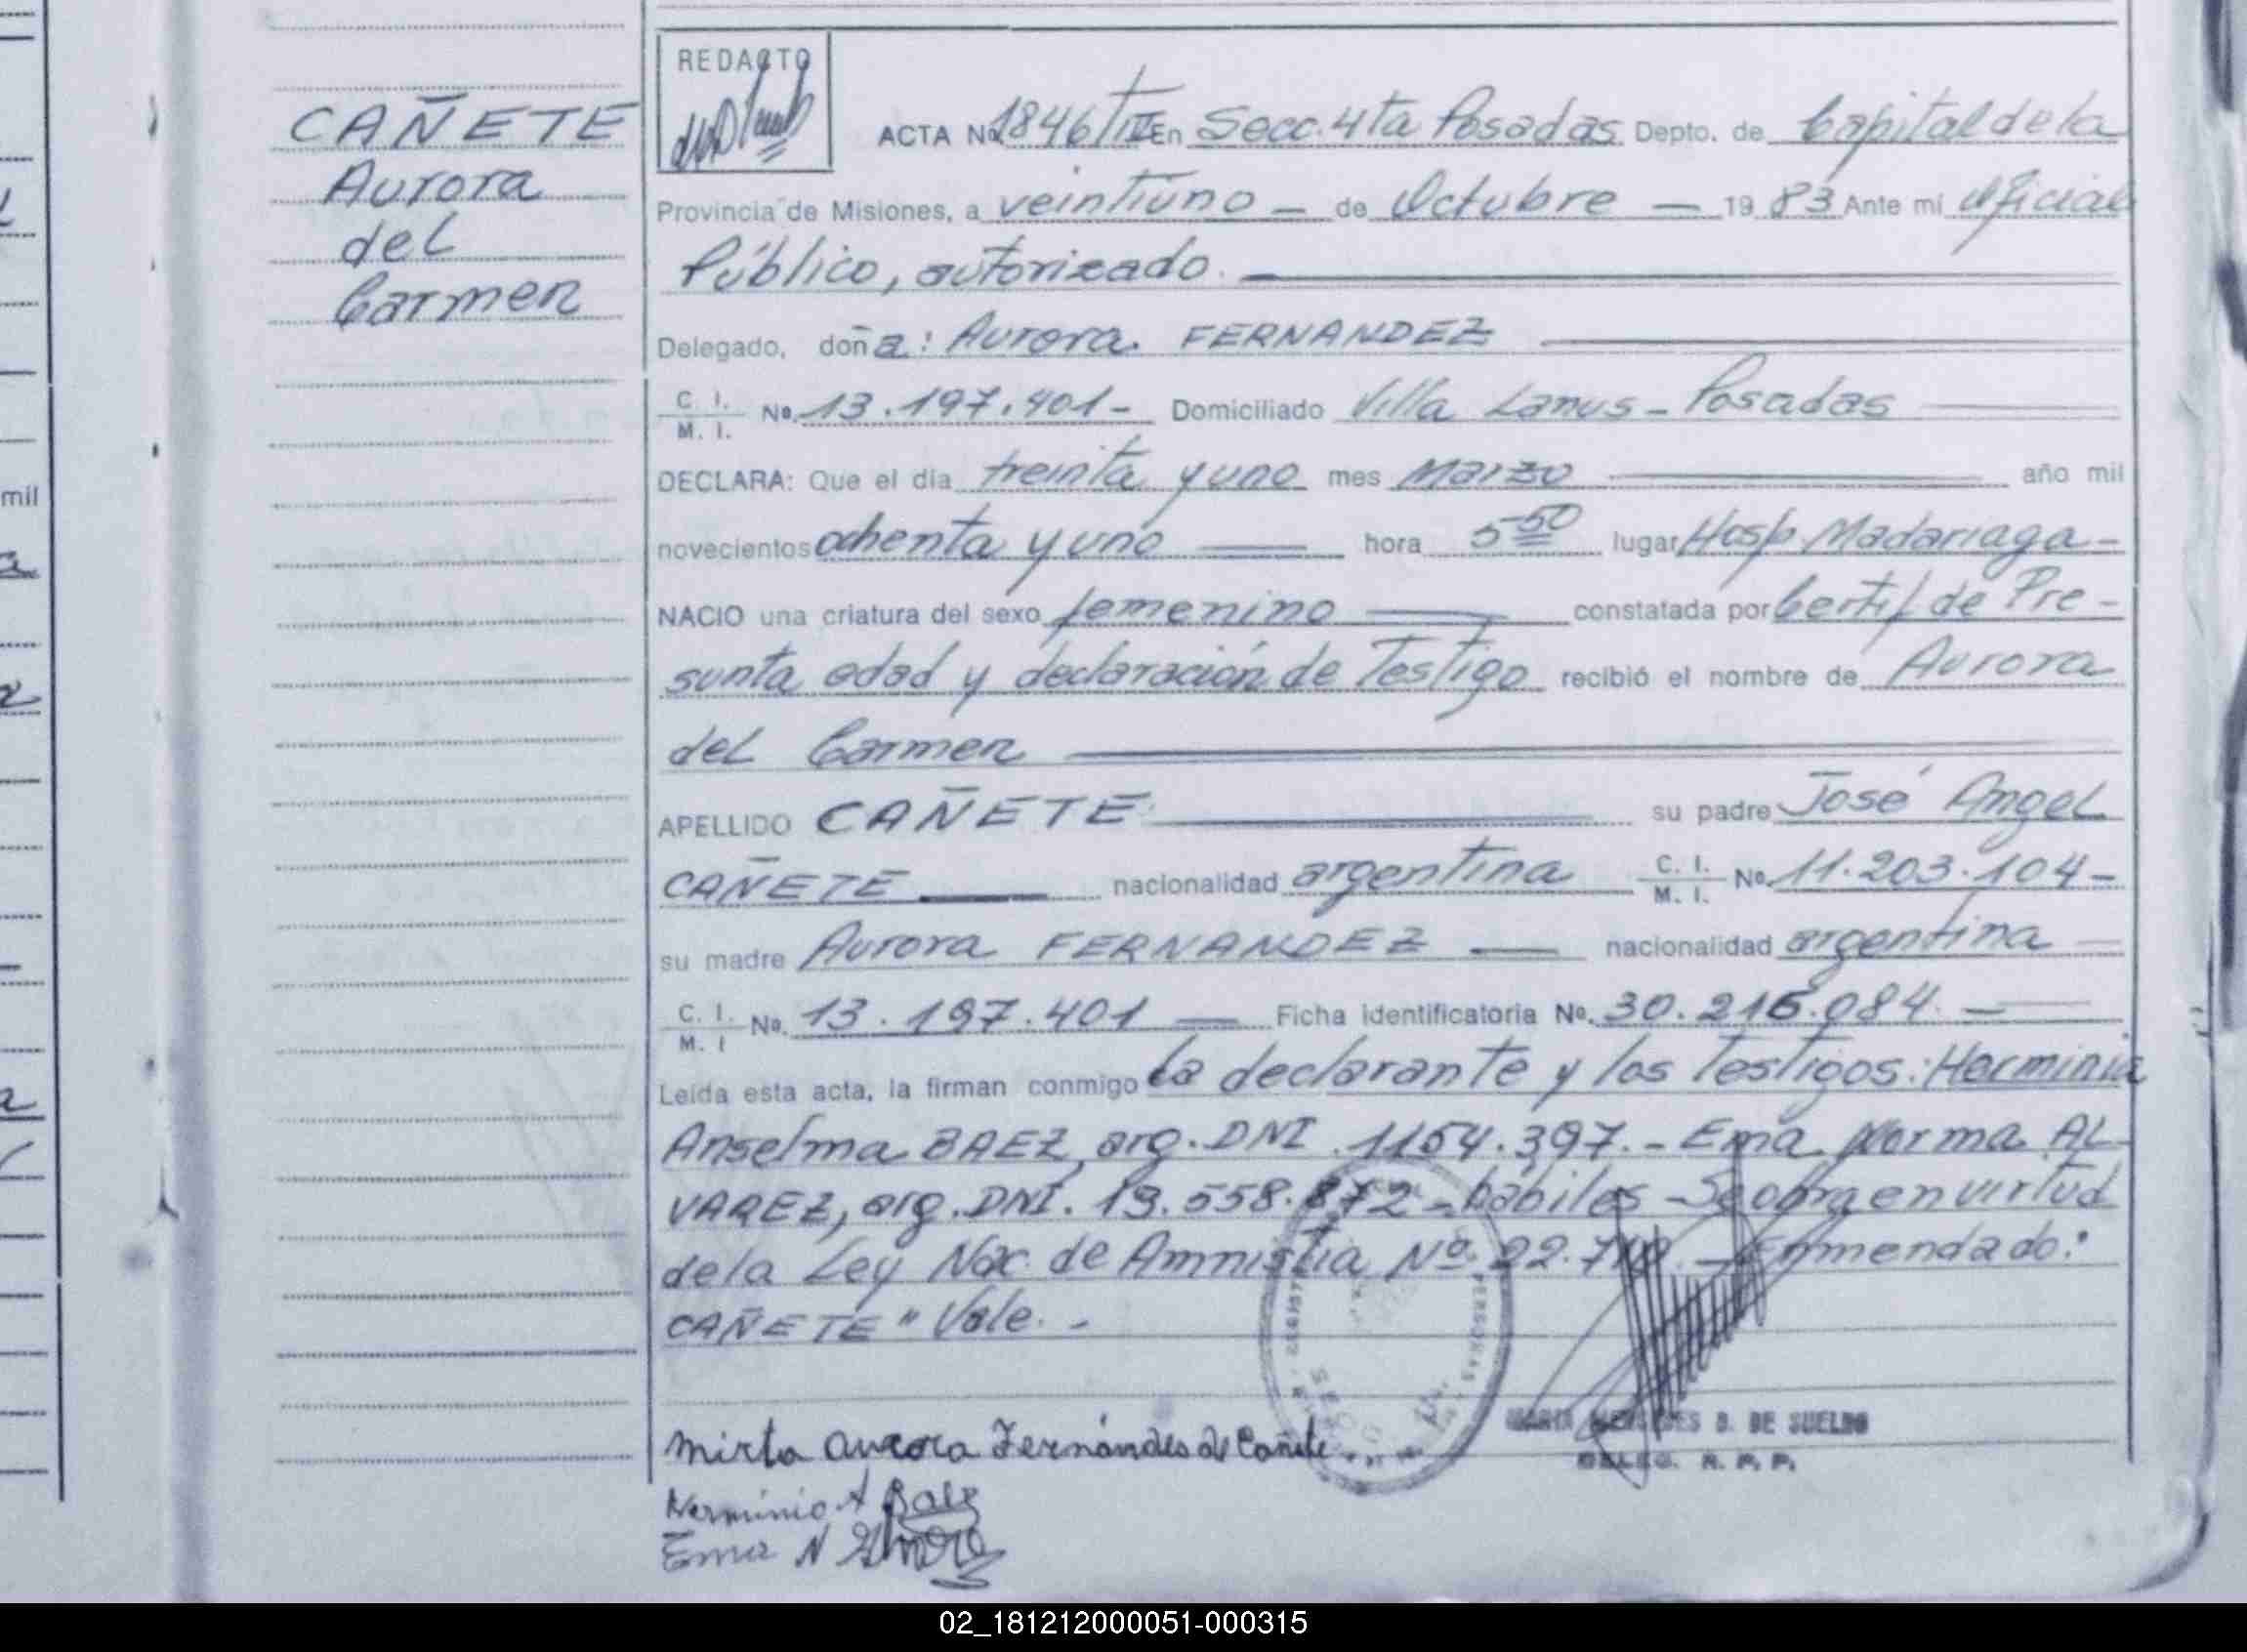 CAÑETE
Aurora
del
Carmen
REDACTO
ACTA Nº 1846/III En Secc. 4ta Posadas Depto. de Capital de la
Provincia de Misiones, a veintiuno — de Octubre — 1983 Ante mí Oficial
Público, autorizado.
Delegado, doña: Aurora FERNANDEZ
C. I. M. I. Nº. 13.197.401- Domiciliado Villa Lanus - Posadas
DECLARA: Que el día treinta y uno mes Marzo año mil
novecientos ochenta y uno hora 5 50 lugar Hosp. Madariaga -
NACIO una criatura del sexo femenino constatada por Certif de Pre-
sunta edad y declaración de Testigo recibió el nombre de Aurora
del Carmen
APELLIDO CAÑETE su padre José Angel
CAÑETE nacionalidad argentina C. I. M. I. Nº. 11.203.104-
su madre Aurora FERNANDEZ — nacionalidad argentina
C. I. M. I Nº. 13.197.401 — Ficha identificatoria Nº. 30.216.084. —
Leída esta acta, la firman conmigo la declarante y los testigos: Herminia
Anselma BAEZ, arg. DNI 1154.397. - Ema Norma AL-
VAREZ, arg. DNI. 19.558.872 - hábiles - Se obra en virtud
de la Ley Nac. de Amnistía Nº 22. - Enmendado:
CAÑETE" Vale. -
Mirta Aurora Fernández de Cañete
Herminia A Baez
Ema N
PERSONAS
MARIA MERCEDES B. DE SUELDO
DELEG. R. P. P.
mil
02_181212000051-000315